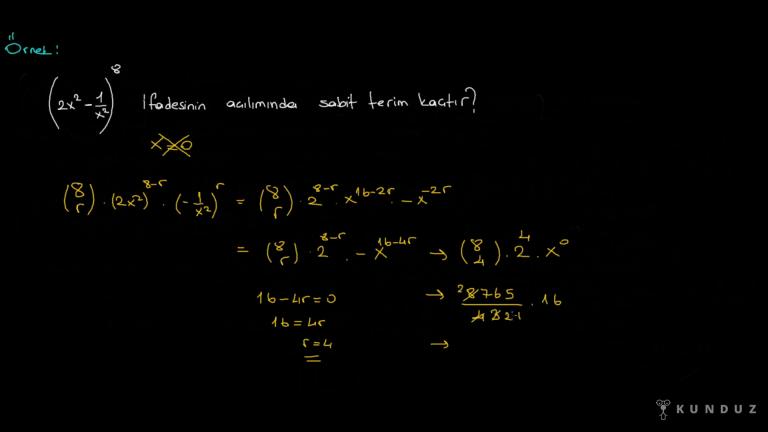 Örnek:
(2x² - 1/x²)⁸ ifadesinin açılımında sabit terim kaçtır?
x=0
(8 r) · (2x²)^8-r · (-1/x²)^r = (8 r) · 2^8-r · x^16-2r · -x^-2r
= (8 r) · 2^8-r · -x^16-4r → (8 4) · 2⁴ · x⁰
16-4r=0 → ²8765/4321 · 16
16=4r
r=4 →
KUNDUZ